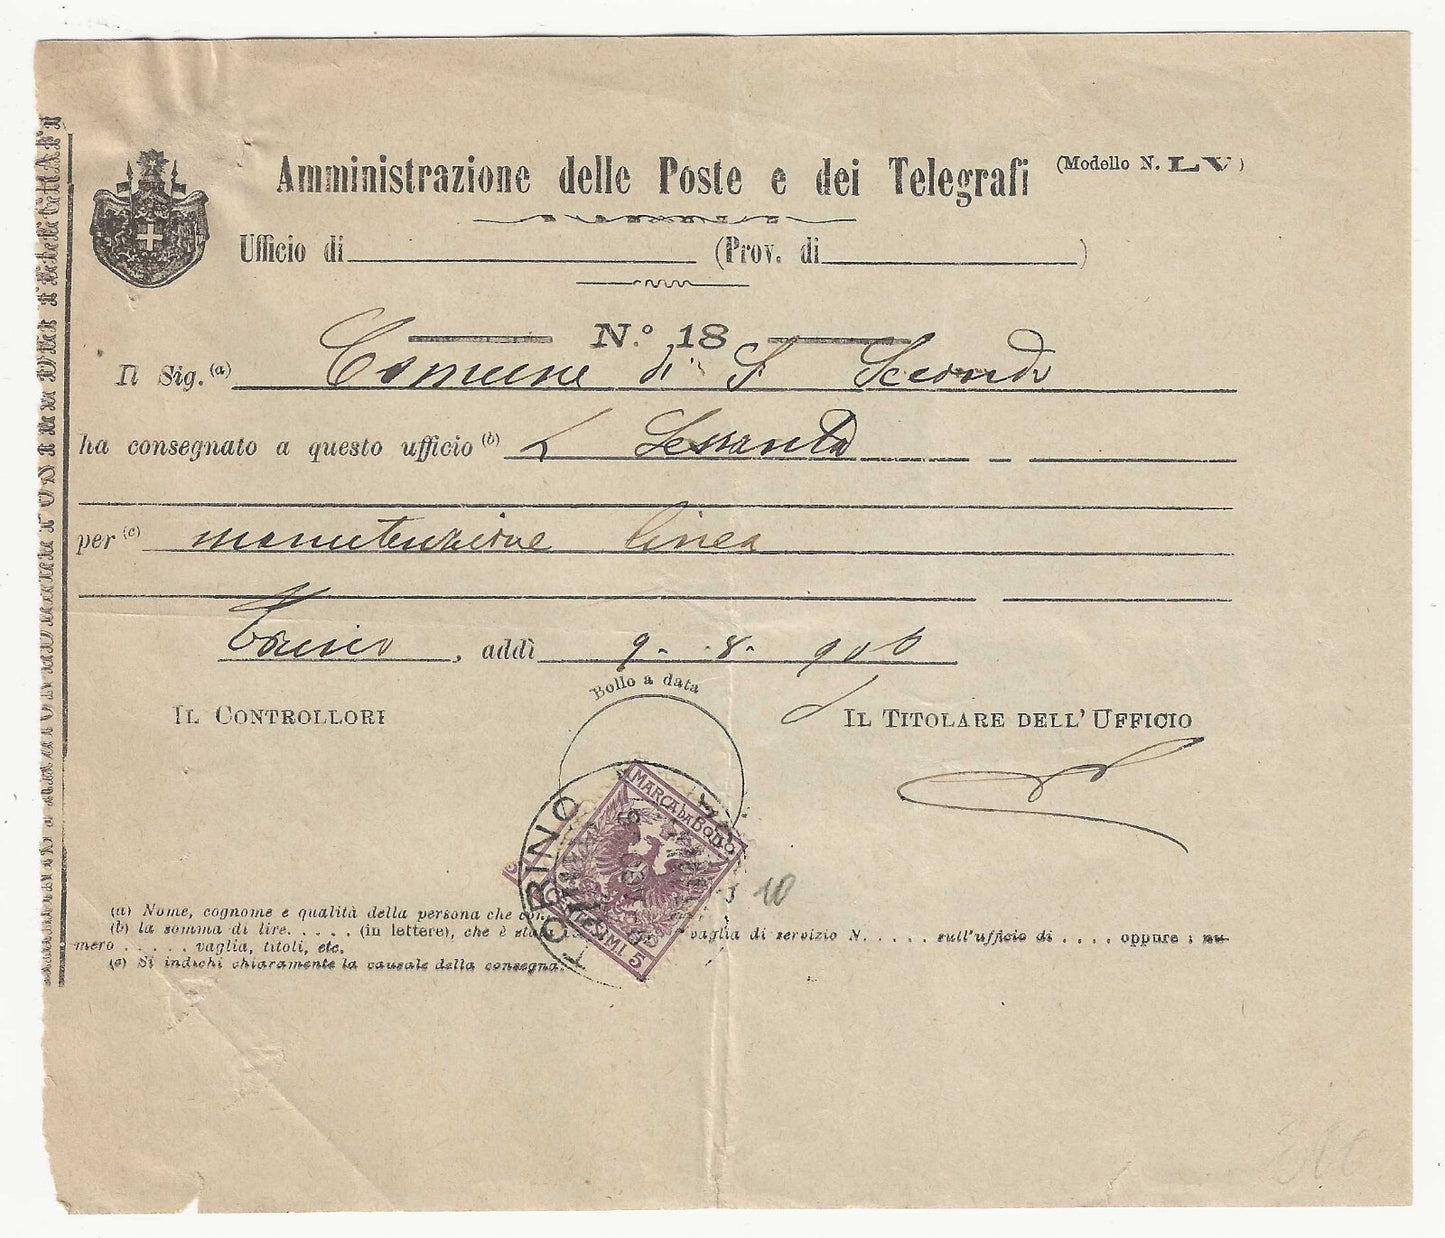 Amministrazione delle Poste e dei Telegrafi (Modello N. LV)
Ufficio di (Prov. di )
N.° 18
Il Sig. (a) Comune di S Secondo
ha consegnato a questo ufficio (b) L Sessanta
per (c) manutenzione linea
Torino, addì 9 - 8 - 906
Bollo a data
IL CONTROLLORE
IL TITOLARE DELL' UFFICIO
MARCA DA BOLLO
CENTESIMI 5
TORINO
10
(a) Nome, cognome e qualità della persona che con
(b) la somma di lire. . . . . (in lettere), che è vaglia di servizio N. . . . . sull'ufficio di . . . . oppure : nu-
mero . . . . . vaglia, titoli, etc.
(c) Si indichi chiaramente la causale della consegna.